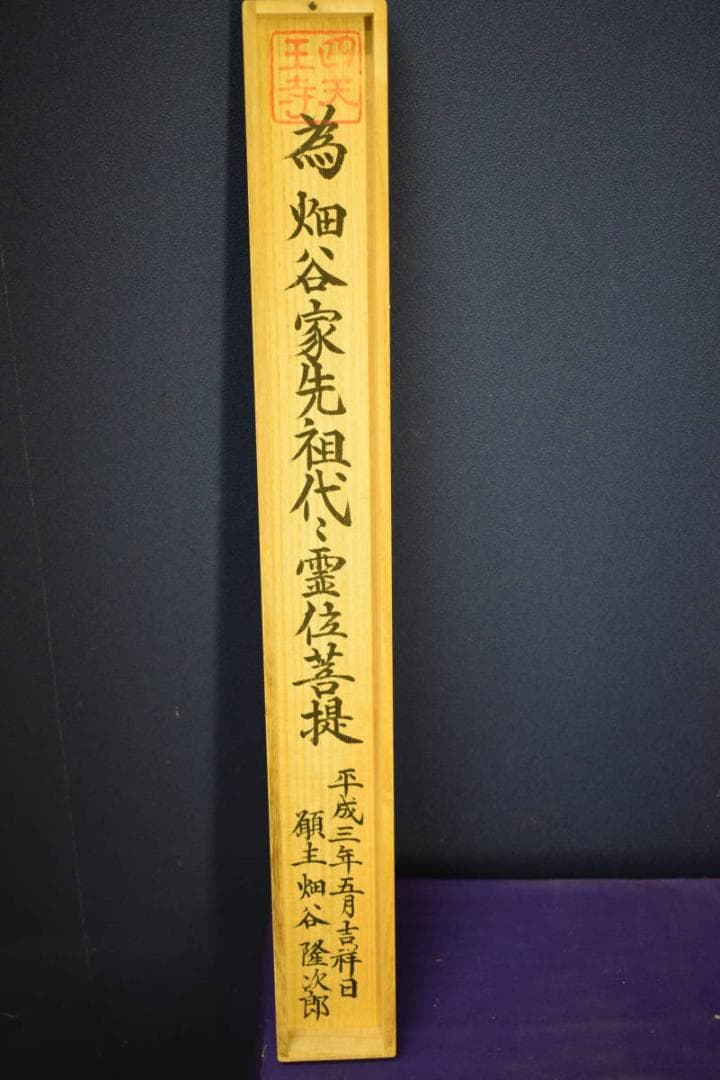 四天
王寺
為畑谷家先祖代〻霊位菩提
平成三年五月吉祥日
願主畑谷隆次郎